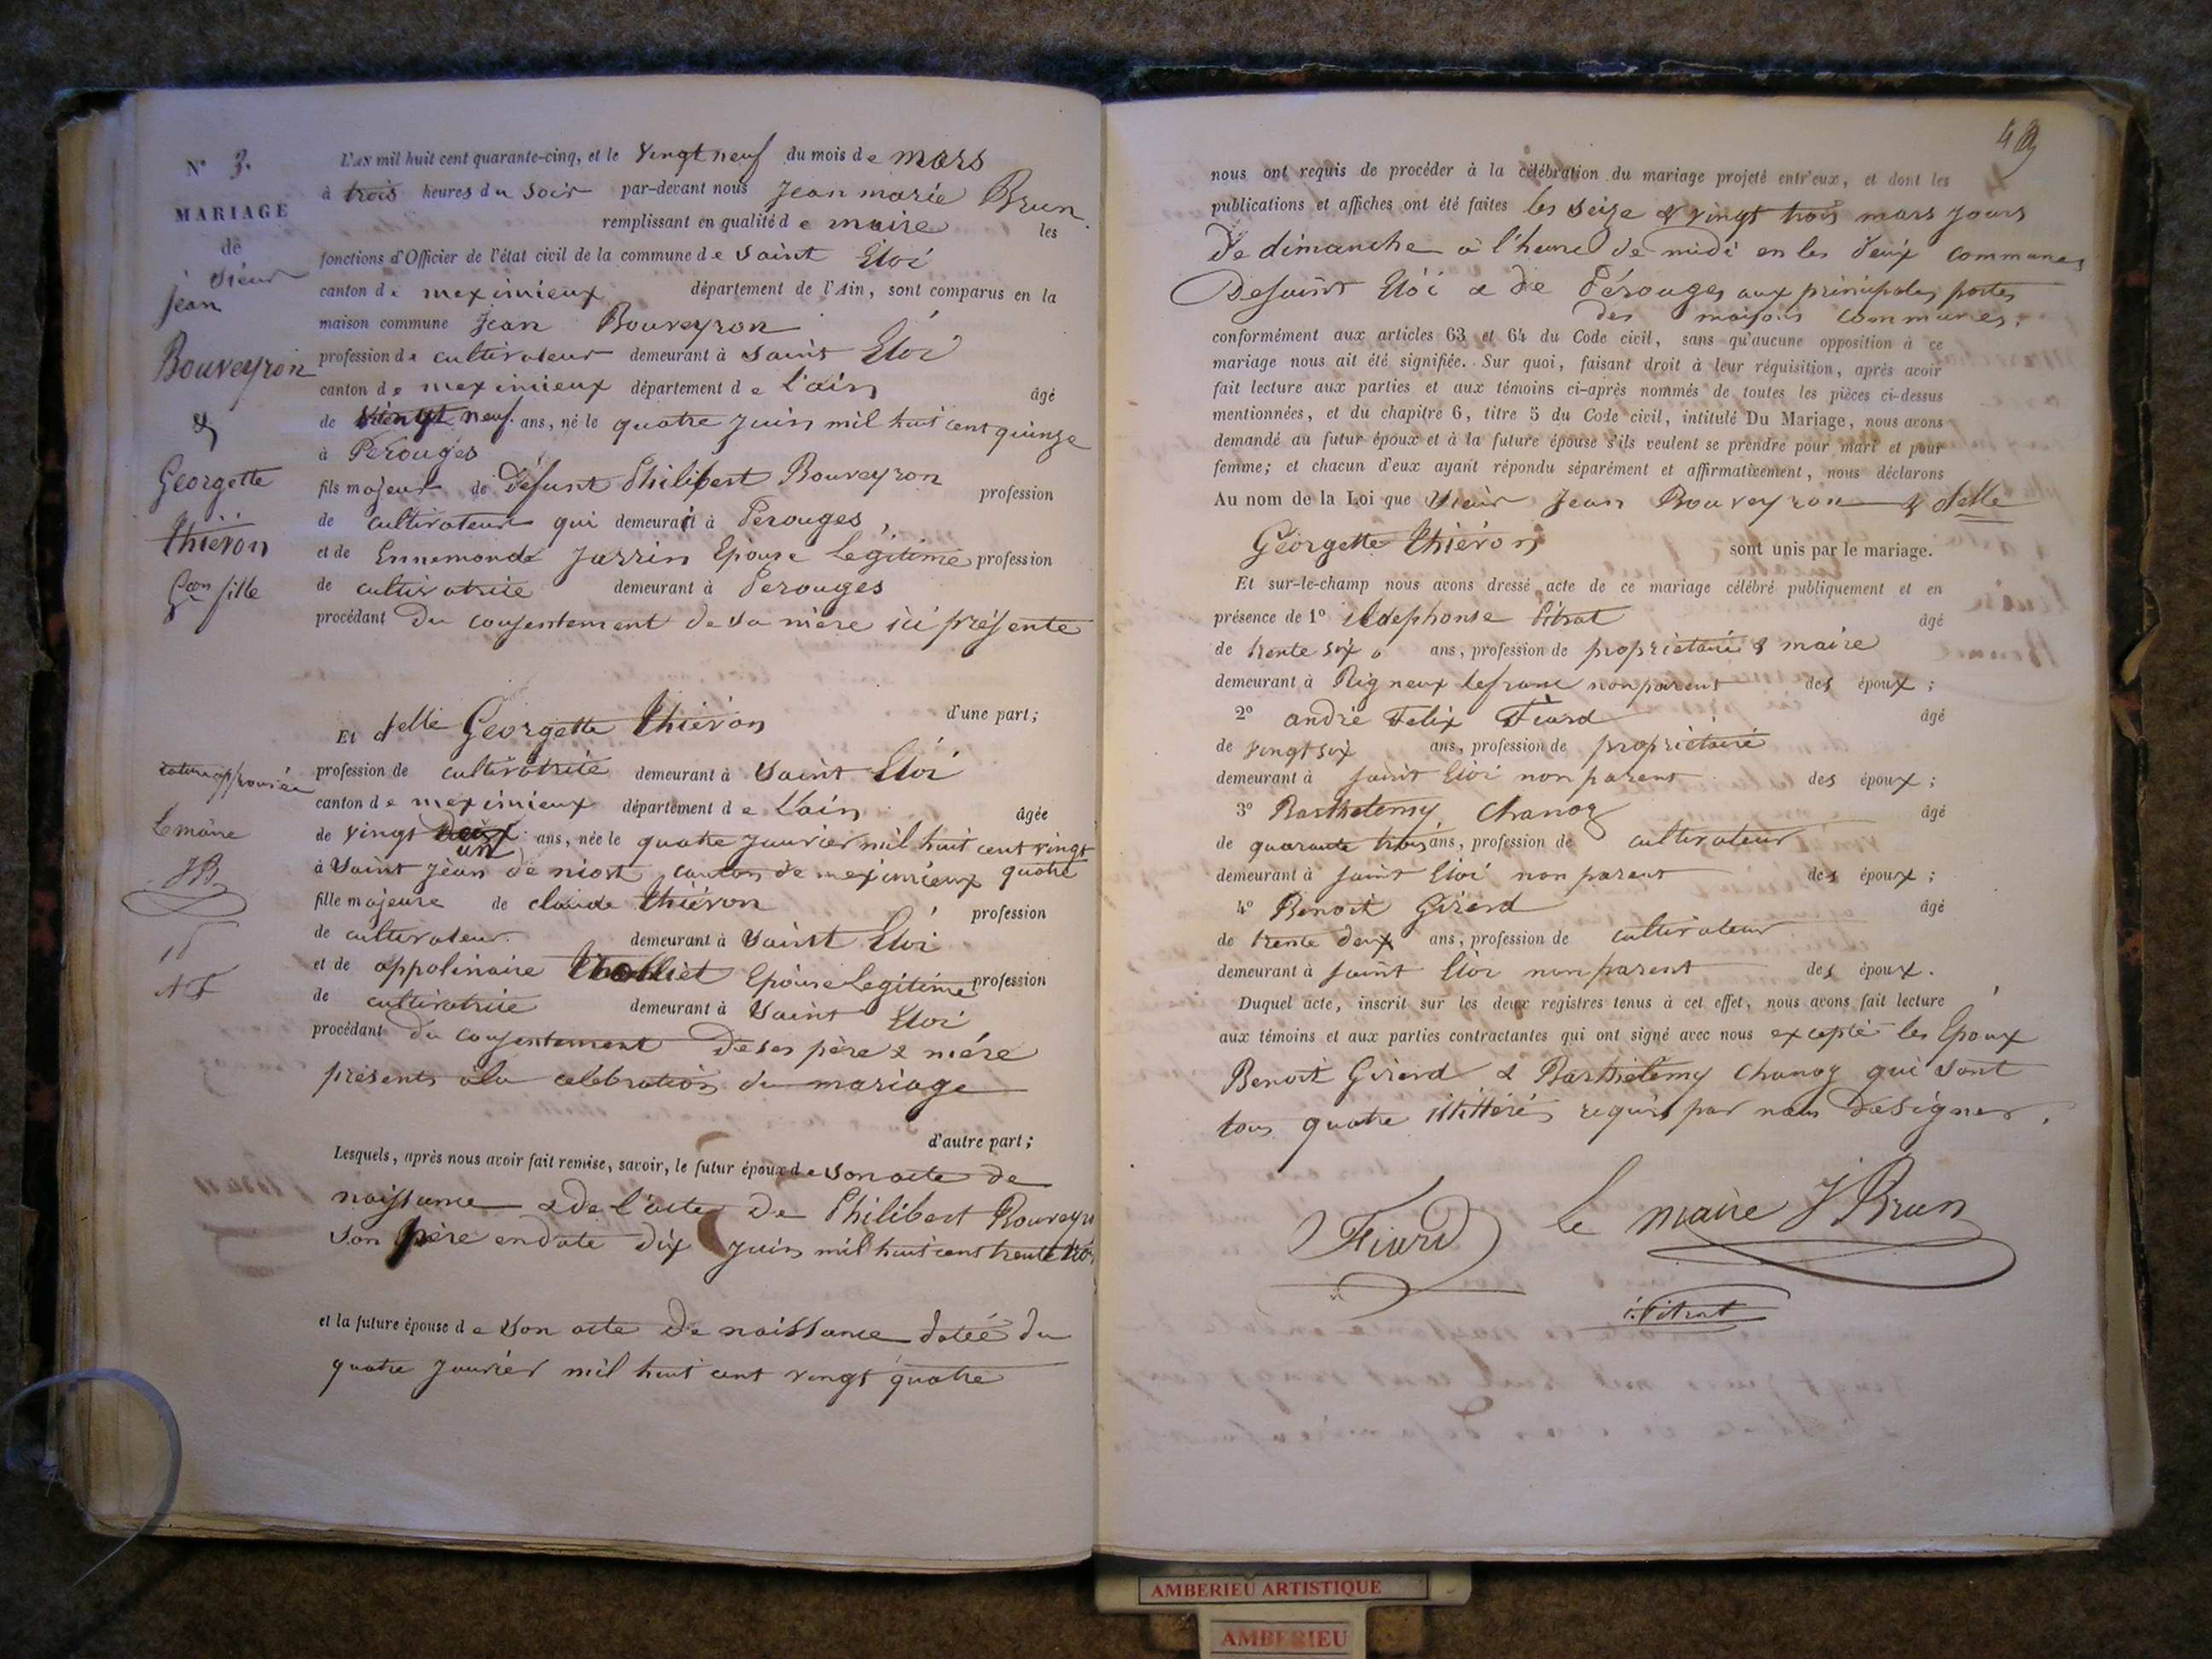 N° 3.
MARIAGE
de
Sieur
Jean
Bouveyron
&
Georgette
Thiévon
Con fille
rature approuvée
Le maire
JB
AF
L'AN mil huit cent quarante-cinq, et le vingt neuf du mois de mars
à trois heures du soir par-devant nous Jean marie Brun
remplissant en qualité de maire les
fonctions d'Officier de l'état civil de la commune de saint Eloi
canton de meximieux département de l'Ain, sont comparus en la
maison commune Jean Bouveyron
profession de cultivateur demeurant à saint Eloi
canton de meximieux département de l'ain âgé
de vingt neuf ans, né le quatre Juin mil huit cent quinze
à Perouges
fils majeur de Défunt Philibert Bouveyron profession
de cultivateur qui demeurait à Perouges,
et de Ennemonde Jarrin Epouse Legitime profession
de cultivatrice demeurant à Perouges
procédant Du consentement de sa mère ici présente
d'une part;
Et delle Georgette Thiévon
profession de cultivatrice demeurant à saint Eloi
canton de meximieux département de l'ain âgée
de vingt un ans, née le quatre Janvier mil huit cent vingt
à saint Jean de niost canton de meximieux quatre
fille majeure de claude Thiévon profession
de cultivateur demeurant à saint Eloi
et de appolinaire Tholliet Epouse Legitime profession
de cultivatrice demeurant à saint Eloi
procédant du consentement De ses père & mère
présents à la celebration du mariage
d'autre part;
Lesquels, après nous avoir fait remise, savoir, le futur époux de son acte de
naissance & de l'acte De Philibert Bouveyron
son père en date dix Juin mil huit cent trente trois
et la future épouse de son acte De naissance datée du
quatre Janvier mil huit cent vingt quatre
nous ont requis de procéder à la célébration du mariage projeté entr'eux, et dont les
publications et affiches ont été faites les seize & vingt trois mars Jours
De dimanche à l'heure de midi en les deux communes
De saint Eloi & de Pérouges aux principales portes
des maisons communes.
conformément aux articles 63 et 64 du Code civil, sans qu'aucune opposition à ce
mariage nous ait été signifiée. Sur quoi, faisant droit à leur réquisition, après avoir
fait lecture aux parties et aux témoins ci-après nommés de toutes les pièces ci-dessus
mentionnées, et du chapitre 6, titre 5 du Code civil, intitulé Du Mariage, nous avons
demandé au futur époux et à la future épouse s'ils veulent se prendre pour mari et pour
femme; et chacun d'eux ayant répondu séparément et affirmativement, nous déclarons
Au nom de la Loi que sieur Jean Bouveyron & delle
Georgette Thiévon sont unis par le mariage.
Et sur-le-champ nous avons dressé acte de ce mariage célébré publiquement et en
présence de 1° ildephonse Pitrat âgé
de trente six ans, profession de propriétaire & maire
demeurant à Rigneux lefranc non parent des époux;
2° andré Felix Fiard âgé
de vingt six ans, profession de propriétaire
demeurant à saint Eloi non parent des époux;
3° Barthelemy Chanoz âgé
de quarante trois ans, profession de cultivateur
demeurant à saint Eloi non parent des époux;
4° Benoit Girard âgé
de trente deux ans, profession de cultivateur
demeurant à saint Eloi non parent des époux.
Duquel acte, inscrit sur les deux registres tenus à cet effet, nous avons fait lecture
aux témoins et aux parties contractantes qui ont signé avec nous excepté les Epoux
Benoit Girard & Barthélemy Chanoz qui sont
tous quatre illittérés requis par nous de signer.
Fiard
Le maire JBrun
i. Pitrat
AMBERIEU ARTISTIQUE
AMBERIEU